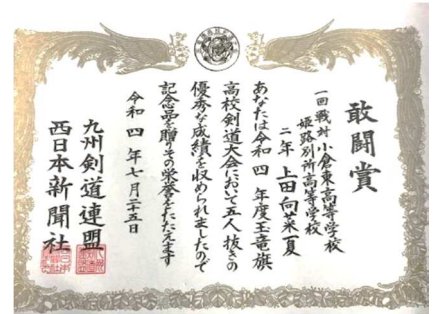 敢闘賞
一回戦対小倉東高等学校
姫路別所高等学校
二年 上田向菜夏
あなたは令和四年度玉竜旗
高校剣道大会において五人抜きの
優秀な成績を収められましたので
記念品を贈りその栄誉をたたえます
令和四年七月二十五日
九州剣道連盟
西日本新聞社